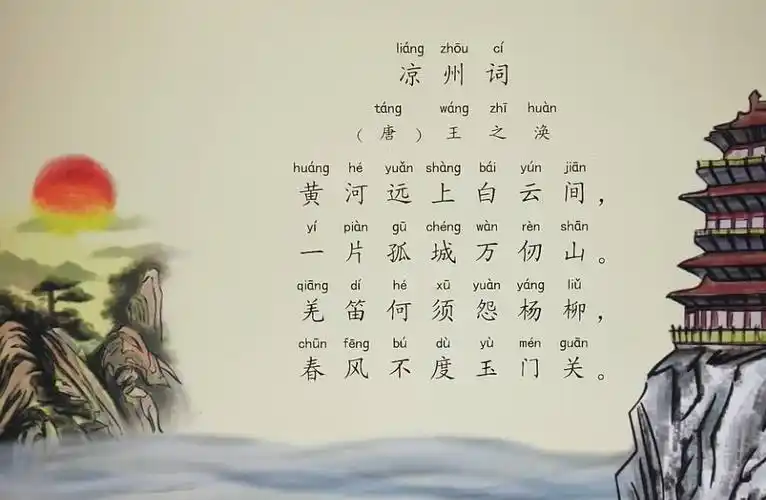 liáng zhōu cí
凉州词
táng wáng zhī huàn
（唐）王之涣
huáng hé yuǎn shàng bái yún jiān
黄河远上白云间，
yí piàn gū chéng wàn rèn shān
一片孤城万仞山。
qiāng dí hé xū yuàn yáng liǔ
羌笛何须怨杨柳，
chūn fēng bú dù yù mén guān
春风不度玉门关。